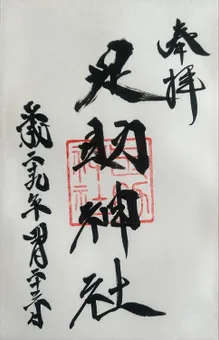 奉拝
足助神社
平成二九年四月二十二日